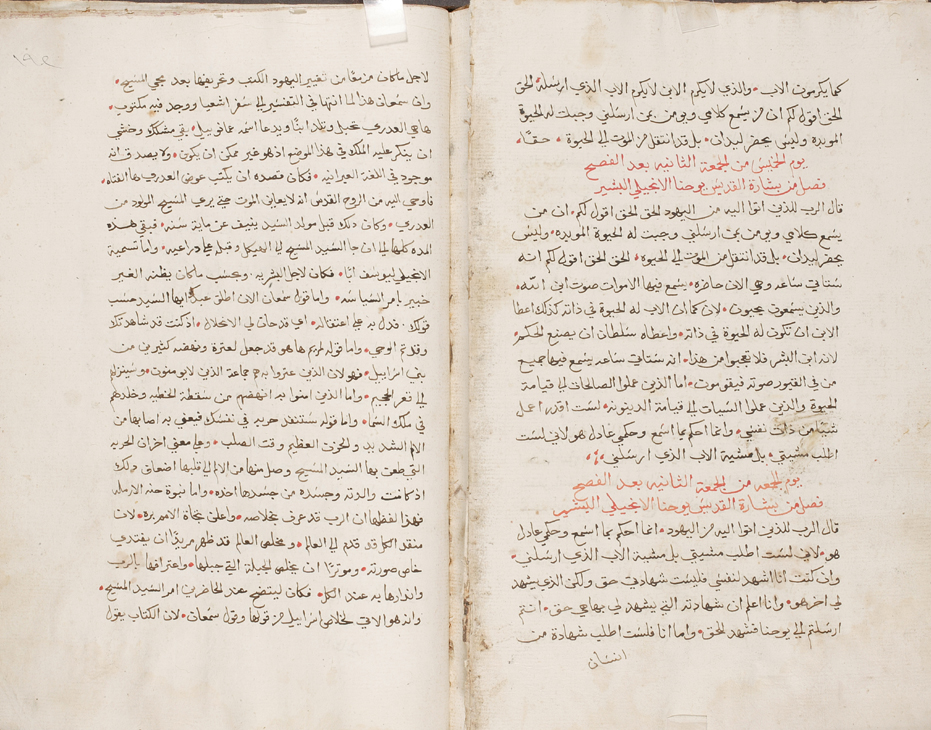 كما يكرموت الاب • والذي لا يكرم الابن لا يكرم الاب الذي ارسله الحق
الحق اقول لكم ان من يسمع كلامي ويومن بمن ارسلني وجبت له الحيوة
الموبده وليس يحضر ليدان • بل قد انتقل من الموت الي الحيوة • حقًا •
يوم الخميس من الجمعة الثانيه بعد الفصح
فصل من بشارة القديس يوحنا الانجيلي البشير
قال الرب للذين اتوا اليه من اليهود الحق الحق اقول لكم • ان من
يسمع كلامي ويومن بمن ارسلني وجبت له الحيوة الموبده • وليس
يحضر ليدان • بل قد انتقل من الموت الي الحيوة • الحق الحق اقول لكم انه
ستاتي ساعه وهي الان حاضره • يسمع فيها الاموات صوت ابن الله •
والذين يسمعون يحيون • لان كما ان الاب له الحيوة في ذاته كذلك اعطا
الابن ان تكون له الحيوة في ذاته • واعطاه سلطان ان يصنع الحكم •
لانه ابن البشر فلا تعجبوا من هذا • انه ستاتي ساعه يسمع فيها جميع
من في القبور صوته فيقومون • اما الذين عملوا الصالحات الي قيامة
الحيوة والذين عملوا السيات الي قيامة الدينونه • لست اقدر اعمل
شيًا من ذات نفسي • وانما احكم بما اسمع وحكمي عادل هو لاني لست
اطلب مشيتي • بل مشية الاب الذي ارسلني •
يوم الجمعه من الجمعة الثانيه بعد الفصح
فصل من بشارة القديس يوحنا الانجيلي البشير
قال الرب للذين اتوا اليه من اليهود • انما احكم بما اسمع وحكمي عادل
هو • لاني لست اطلب مشيتي بل مشية الاب الذي ارسلني •
وان كنت انا اشهد لنفسي فليست شهادتي حق • ولكن الذي يشهد
لي اخر هو • وانا اعلم ان شهادته التي يشهد لي بها هي حق • انتم
ارسلتم الي يوحنا فشهد للحق • واما انا فلست اطلب شهادة من
انسان
لاجل ماكان مزمعًا من تغيير اليهود الكتب وتحريفها بعد مجي المسيح •
وان سمعان هذا لما انتها في التفسير الي سفر اشعيا ووجد فيه مكتوب •
ها هي العدري تحبل وتلد ابنًا ويدعا اسمه عمانوييل • بقي متشكك وخشي
ان ينكر عليه الملك في هذا الموضع اذ هو غير ممكن ان يكون • ولا يصدق انه
موجود في اللغة العبرانيه • فكان قصده ان يكتب عوض العدري ها الفتاه •
فاوحي اليه من الروح القدس انه لا يعاين الموت حتي يري المسيح المولود من
العدري • وكان ذلك قبل مولد السيد بنيف عن ماية سنه • فبقي هذه
المده كلها الي ان جا السيد المسيح الي الهيكل وقبله علي دراعيه • واما تسمية
الانجيلي ليوسف ابًا • فكان لاجل البشريه • وبحسب ماكان يظنه الغير
خبير بامر السياسه • واما قول سمعان الان اطلق عبدك ايها السيد حسب
قولك • فدل به علي اعتقاله • اي قد حان لي الانحلال • اذ كنت قد شاهدتك
وقد تم الوحي • واما قوله لمريم ها هو قد جعل لعثرة ونهضه كثيرين من
بني اسراييل • فهو لان الذين عثروا به هم جماعة الذين لا يومنون • وسينزلهم
الي قعر الجحيم • واما الذين امنوا به انهضهم من سقطة الخطيه وخلدهم
في ملك السما • واما قوله ستنفد حربه في نفسك فيعني به اصابها من
الالم الشديد والحزن العظيم وقت الصلب • وعلي معني اخر ان الحربه
التي طعن بها السيد المسيح وصل منها من الالم الي قلبها اضعاف ذلك
اذ كانت والدته وجسده من جسدها اخده • واما نبوة حنه الارمله
فهذا لفظها ان الرب قد عرف بخلاصه • واعلن نجاة الامم بره • لان
منقد الكل قد قدم الي العالم • ومخلص العالم قد ظهر مريدًا ان يفتدي
خاص صورته • وموثرًا ان يخلص الجبلة التي جبلها • واعترافها بالرب
وانذارها به عند الكل • فكان ليتضح عند الحاضرين امر السيد المسيح •
وانه هو الاتي لخلاص اسراييل من قولها وقول سمعان • لان الكتاب يقول